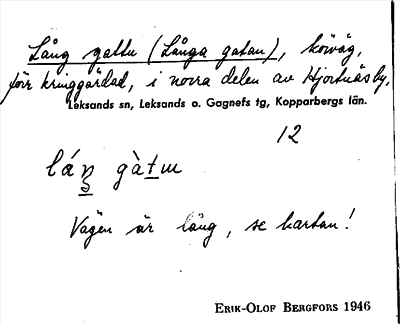 Lång gattu (Långa gatan), köväg,
förr kringgärdad, i norra delen av Hjortnäs by,
Leksands sn, Leksands o. Gagnefs tg, Kopparbergs län.
12
Vägen är lång, se kartan!
ERIK-OLOF BERGFORS 1946